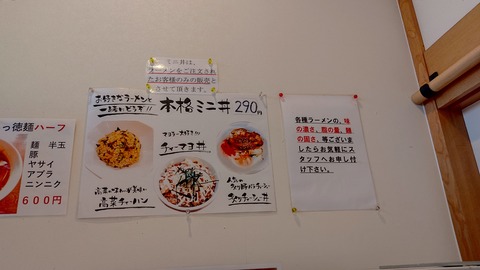 ミニ丼は、
ラーメンをご注文され
たお客様のみの販売と
させて頂きます。
お好きなラーメンと
一緒にどうぞ!!
本格ミニ丼 290円
マヨラー大好き!!!
チャーマヨ丼
高菜チャーハン
人気の
各種ラーメンの、味
の濃さ、脂の量、麺
の固さ、等ござい
ましたらお気軽にス
タッフへお申し付
け下さい。
っ徳麺ハーフ
麺 半玉
豚
ヤサイ
アブラ
ニンニク
600円